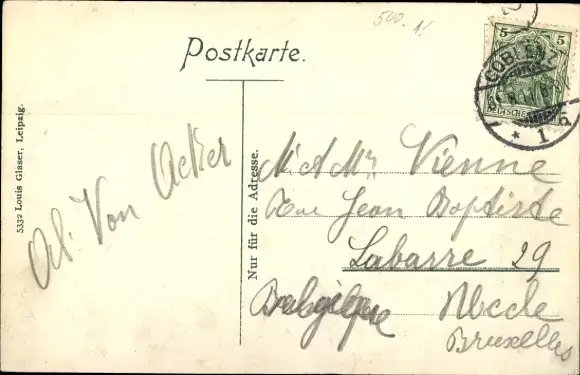 540.-1!
Postkarte.
5
5
COBLENZ
DEUTSCHES
* 1 h
5332 Louis Glaser, Leipzig.
Ad. Von Acker
Nur für die Adresse.
M. & Mme Vienne
Rue Jean Baptiste
Labarre 29
Belgique Uccle
Bruxelles